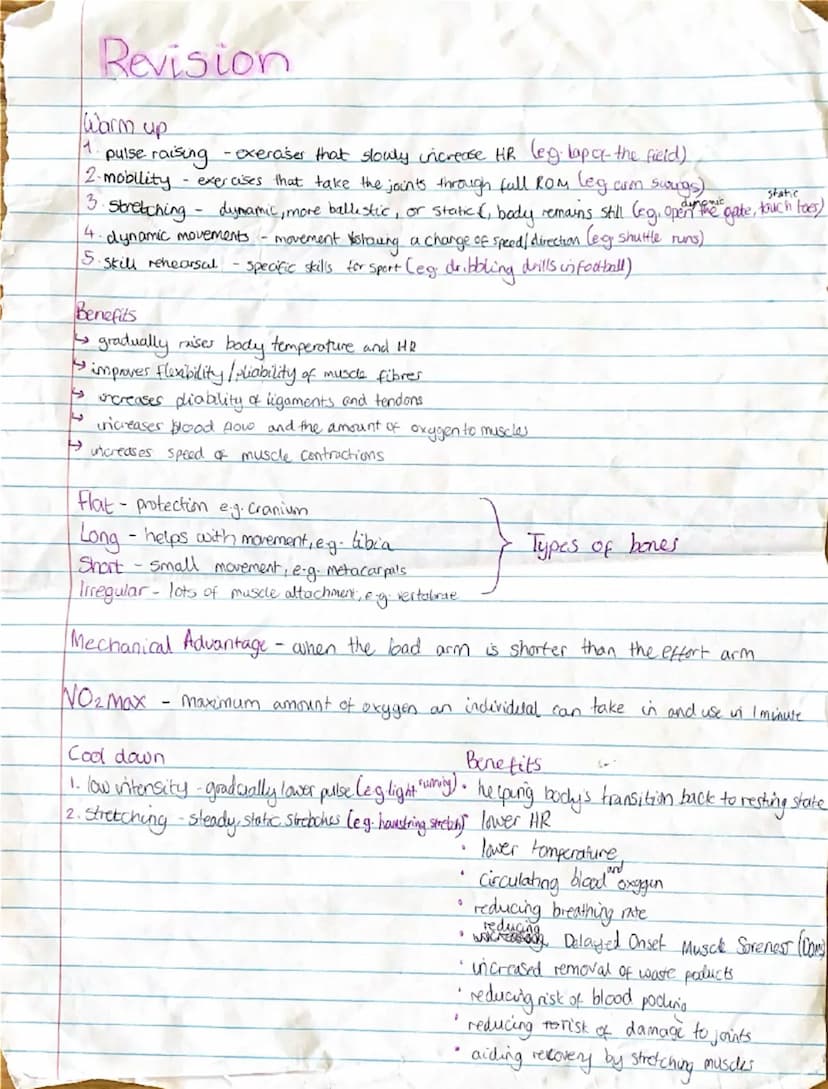 Revision
Warm up
1. pulse raising - exercises that slowly increase HR (eg. lap of the field)
2. mobility - exercises that take the joints through full ROM (eg arm swings)
3. Stretching - dynamic, more ballistic, or static, body remains still (eg, open the gate, touch toes)
dynamic static
4. dynamic movements - movement a change of speed/direction (eg shuttle runs)
5. skill rehearsal - specific skills for sport (eg dribbling drills in football)
Benefits
↳ gradually raises body temperature and HR
↳ improves flexibility/pliability of muscle fibres
↳ increases pliability of ligaments and tendons
↳ increases blood flow and the amount of oxygen to muscles
↳ increases speed of muscle contractions
Flat - protection e.g. cranium
Long - helps with movement, e.g. tibia
Short - small movement, e.g. metacarpals
Irregular - lots of muscle attachment, e.g. vertabrae
Types of bones
Mechanical Advantage - when the load arm is shorter than the effort arm
VO2 max - maximum amount of oxygen an individual can take in and use in 1 minute
Cool down
1. low intensity - gradually lower pulse (eg light running)
2. Stretching - steady, static stretches (eg. hamstring stretch)
Benefits
• helping body's transition back to resting state
lower HR
• lower temperature
• circulating blood and oxygen
• reducing breathing rate
• reducing Delayed Onset Muscle Soreness (Doms)
• increased removal of waste products
• reducing risk of blood pooling
• reducing risk of damage to joints
• aiding recovery by stretching muscles